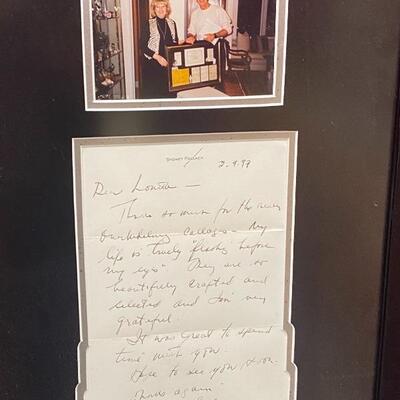 SYDNEY POLLACK
2.9.99
Dear Lonnie —
Thanks so much for the very
overwhelming collages — My
life is truely "flashing before
my eyes" They are so
beautifully crafted and
selected and I'm very
grateful!
It was great to spend
time with you.
Hope to see you soon.
Thanks again